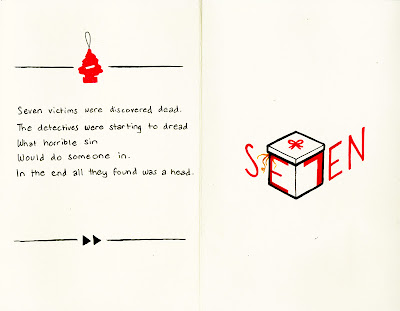 Seven victims were discovered dead.
The detectives were starting to dread
What horrible sin
Would do someone in.
In the end all they found was a head.
SE7EN